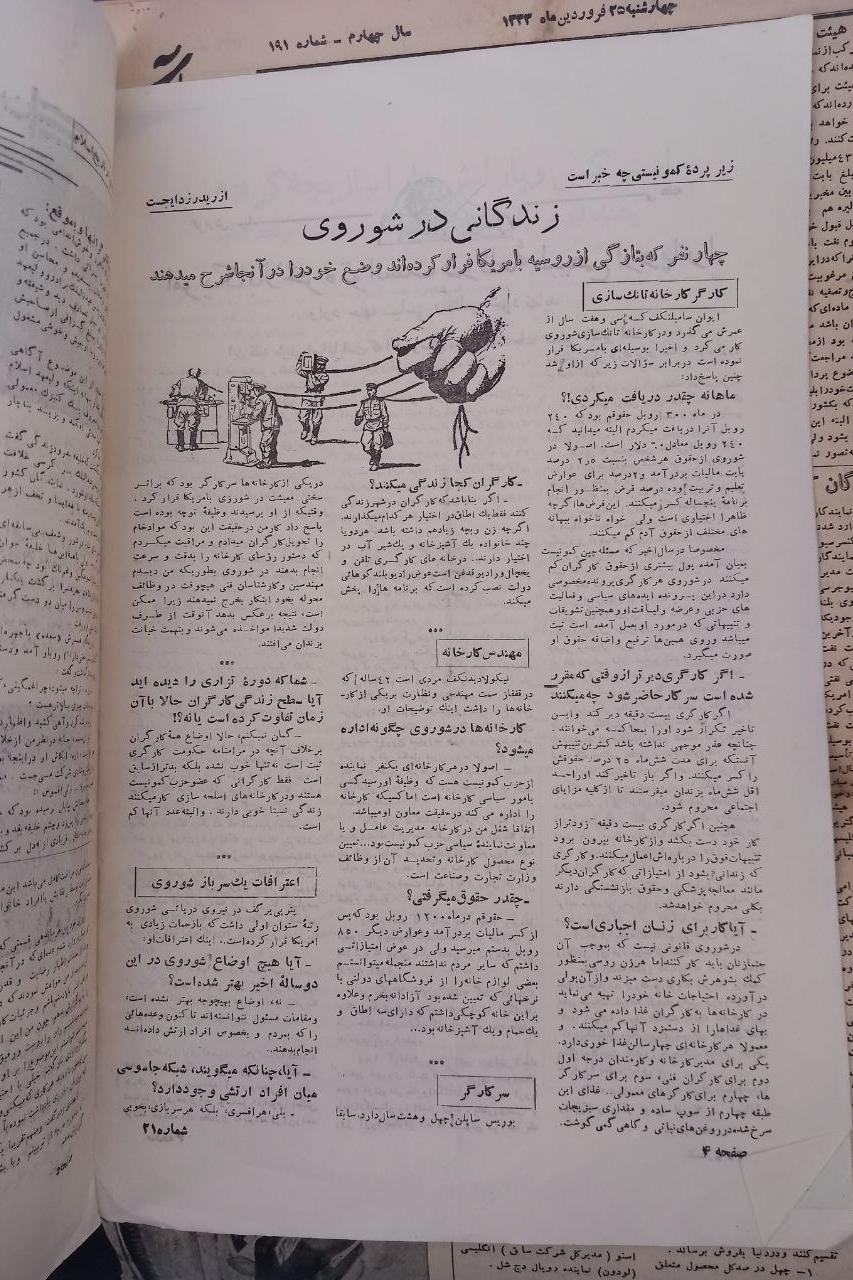 چهارشنبه ۲۵ فروردین ماه ۱۳۳۳
سال چهارم ــ شماره ۱۹۱
زیر پردهٔ کمونیستی چه خبر است
از ریدرز دایجست
زندگانی در شوروی
چهار نفر که بتازگی از روسیه بامریکا فرار کرده‌اند وضع خود را در آنجا شرح میدهند
کارگر کارخانه تانك سازی
ایوان سامیلنکف که سی و هفت سال از
عمرش می گذرد و در کارخانه تانك‌سازی شوروی
کار می‌کرد و اخیرا بوسیله‌ای بامریکا فرار
نموده است در برابر سؤالات زیر که از او شد
چنین پاسخ داد:
ماهانه چقدر دریافت میکردی!؟
در ماه ۳۰۰ روبل حقوقم بود که ۲۴۰
روبل آنرا دریافت میکردم البته میدانید که
۲۴۰ روبل معادل ۶۰ دلار است. اصولا در
شوروی از حقوق هر شخص بنسبت ۲٫۵ درصد
بابت مالیات بر درآمد و ۲ درصد برای عوارض
تعلیم و تربیت و ده درصد قرض بمنظور انجام
برنامهٔ پنجساله کسر میکنند. این قرض‌ها گرچه
ظاهرا اختیاری است ولی خواه ناخواه ببهانه
های مختلف از حقوق آدم کم میکنند.
مخصوصا در سال اخیر که مسئله چین کمونیست
بمیان آمده پول بیشتری از حقوق کارگران کم
میکنند در شوروی هر کارگری پرونده مخصوصی
دارد در این پرونده ایده‌های سیاسی و فعالیت
های حزبی و عرضه و لیاقت او و همچنین تشویقات
و تنبیهاتی که در مورد او بعمل آمده است ثبت
میباشد و روی همین‌ها ترفیع و اضافه حقوق او
صورت میگیرد.
ـ اگر کارگری دیرتر از وقتی که مقرر
شده است سر کار حاضر شود چه میکنند
اگر کارگری بیست دقیقه دیر کند و این
تاخیر تکرار شود او را بمحاکمه می‌خوانند.
چنانچه عذر موجهی نداشته باشد کمترین تنبیهش
آنستکه برای مدت شش ماه ۲۵ درصد حقوقش
را کسر میکنند. و اگر باز تاخیر کند او را حد
اقل شش ماه بزندان میفرستند تا از کلیه مزایای
اجتماعی محروم شود.
همچنین اگر کارگری بیست دقیقه زودتر از
کار خود دست بکشد و از کارخانه بیرون برود
تنبیهات فوق را درباره‌اش اعمال میکنند. و کارگری
که زندانی بشود از امتیازاتی که کارگران دیگر
مانند معالجه پزشکی و حقوق بازنشستگی دارند
بکلی محروم خواهد شد.
ـ آیا کار برای زنان اجباری است؟
در شوروی قانونی نیست که بموجب آن
حتما زنان باید کار کنند اما هر زن روسی بمنظور
کمك بشوهرش بکاری دست میزند و از آن پولی
درآورده احتیاجات خانه خود را تهیه می‌نماید
در کارخانه‌ها به کارگران غذا داده می‌شود و
بهای غذاها را از دستمزد آنها کم میکنند. و
معمولا هر کارخانه‌ای چهار سالن غذا خوری دارد.
یکی برای مدیر کارخانه و کارمندان درجه اول
دوم برای کارگران فنی، سوم برای سرکارگر
ها، چهارم برای کارگرهای معمولی.. غذای این
طبقه چهارم از سوپ ساده و مقداری سبزیجات
سرخ شده در روغن‌های نباتی و گاهی کمی گوشت
صفحه ۴
ـ کارگران کجا زندگی میکنند؟
ـ اگر بنا باشد که کارگران در شهر زندگی
کنند فقط یك اطاق در اختیار هر کدام میگذارند.
اگر چه زن و بچه زیاد هم داشته باشد. هر دو یا
چند خانواده یك آشپزخانه و یك شیر آب در
اختیار دارند.. در خانه‌های کارگری تلفن و
یخچال و رادیو قدغن است عوض رادیو بلندگوهائی
دولت نصب کرده است که برنامه ها را پخش
میکند.
***
مهندس کارخانه
نیکولا دیدنیکف مردی است ۴۲ ساله که
در قفقاز سمت مهندسی و نظارت بر یکی از کار-
خانه‌ها را داشت اینك توضیحات او.
کارخانه‌ها در شوروی چگونه اداره
میشود؟
ـ اصولا در هر کارخانه‌ای یکنفر نماینده
از حزب کمونیست است که وظیفهٔ او رسیدگی
بامور سیاسی کارخانه است اما کسیکه کارخانه
را اداره می‌کند در حقیقت معاون او میباشد.
اتفاقا شغل من در کارخانه مدیریت عامل و یا
معاونت نمایندهٔ سیاسی حزب کمونیست بود... تعیین
نوع محصول کارخانه و تحدید آن از وظائف
وزارت تجارت و صنعت است.
ـ چقدر حقوق میگرفتی؟
ـ حقوقم در ماه ۱۲۰۰ روبل بود که پس
از کسر مالیات بر درآمد و عوارض دیگر ۸۵۰
روبل بدستم میرسید ولی در عوض امتیازاتی
داشتم که سایر مردم نداشتند منجمله میتوانستم
بعضی لوازم خانه را از فروشگاههای دولتی با
نرخهائی که تعیین شده بود آزادانه بخرم و علاوه
بر این خانه کوچکی داشتم که دارای سه اطاق و
یك حمام و یك آشپزخانه بود...
***
سر کارگر
بوریس سایلن چهل و هشت سال دارد، سابقا
در یکی از کارخانه‌ها سرکارگر بود که بر اثر
سختی معیشت در شوروی بامریکا فرار کرد.
وقتیکه از او پرسیدند وظیفهٔ تو چه بوده است
پاسخ داد کار من در حقیقت این بود که مواد خام
را تحویل کارگران میدادم و مراقبت میکردم
که دستور رؤسای کارخانه را بدقت و سرعت
انجام بدهند در شوروی بطوریکه من دیدم
مهندسین و کارشناسان فنی هیچوقت در وظائف
محوله بخود ابتکار بخرج نمیدهند زیرا ممکن
است، نتیجه بر عکس بدهد آنوقت از طرف
دولت شدیدا مواخذه می‌شوند و بتهمت خیانت
بزندان می‌افتند.
***
ـ شما که دورهٔ تزاری را دیده اید
آیا سطح زندگی کارگران حالا با آن
زمان تفاوت کرده است یا نه؟!
ـ گمان نمیکنم، حالا اوضاع همهٔ کارگران
بر خلاف آنچه در مرامنامه حکومت کارگری
ثبت است نه تنها خوب نشده بلکه بدتر از سابق
است فقط کارگرانی که عضو حزب کمونیست
هستند و در کارخانه‌های اسلحه سازی کار میکنند
زندگی نسبتا خوبی دارند. والبته عدد آنها کم
است.
***
اعترافات یك سرباز شوروی
پتر پی‌یر گف در نیروی دریائی شوروی
رتبهٔ ستوان اولی داشت که با زحمات زیادی به
امریکا فرار کرده.. اینك اعترافات او:
ـ آیا هیچ اوضاع شوروی در این
دو سالهٔ اخیر بهتر شده است؟
ـ نه، اوضاع بهیچوجه بهتر نشده است،
ومقامات مسئول نتوانسته‌اند تا کنون وعده‌هائی
را که بمردم و بخصوص افراد ارتش داده‌اند
انجام بدهند..
ـ آیا، چنانکه میگویند، شبکه جاسوسی
میان افراد ارتشی وجود دارد؟
ـ بلی، هر افسری، بلکه هر سربازی، بخوبی
شماره ۲۱
تقسیم کنند و در دنیا بفروش برسانند.
۱ــ چهل در صد کل محصول متعلق
اسنو ( مدیر کل شرکت سابق ) انگلیسی
(لودون) نماینده رویال دچ شل.